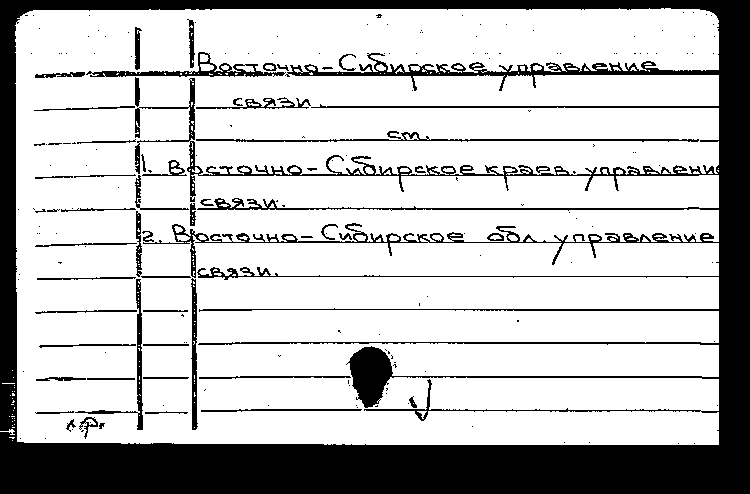 Восточно-Сибирское управление
связи.
ст.
1. Восточно-Сибирское краев. управление
связи.
2. Восточно-Сибирское обл. управление
связи.